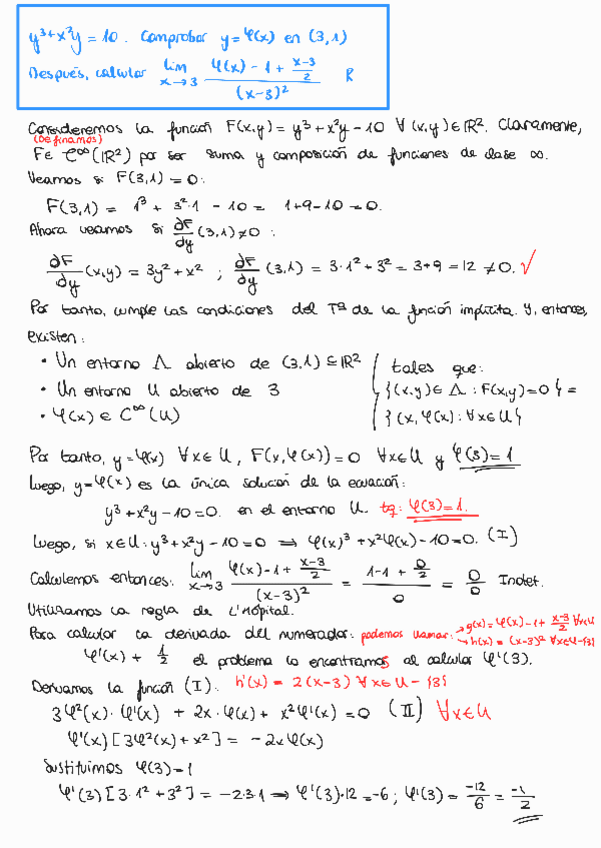 y³+x²y = 10. Comprobar y=φ(x) en (3,1)
Después, calcular lim x→3 (φ(x) - 1 + (x-3)/2) / (x-3)² R
Consideremos la función F(x,y) = y³+x²y - 10 ∀(x,y)∈ℝ². Claramente,
(Definamos)
F∈ C^∞(ℝ²) por ser suma y composición de funciones de clase ∞.
Veamos si F(3,1) = 0:
F(3,1) = 1³ + 3²·1 - 10 = 1+9-10 = 0.
Ahora veamos si ∂F/∂y (3,1) ≠ 0 :
∂F/∂y (x,y) = 3y² + x² ; ∂F/∂y (3,1) = 3·1² + 3² = 3+9 = 12 ≠ 0. ✓
Por tanto, cumple las condiciones del Tª de la función implícita. Y, entonces,
existen:
• Un entorno Λ abierto de (3,1) ⊆ ℝ²
• Un entorno U abierto de 3
• φ(x) ∈ C^∞(U)
tales que:
{(x,y) ∈ Λ : F(x,y) = 0} =
{(x, φ(x) : ∀x∈U}
Por tanto, y=φ(x) ∀x∈U, F(x,φ(x)) = 0 ∀x∈U y φ(3) = 1
Luego, y=φ(x) es la única solución de la ecuación:
y³ + x²y - 10 = 0. en el entorno U. tq: φ(3)=1.
Luego, si x∈U: y³+x²y-10=0 ⟹ φ(x)³ + x²φ(x) - 10 = 0. (I)
Calculemos entonces: lim x→3 (φ(x) - 1 + (x-3)/2) / (x-3)² = (1-1 + 0/2) / 0 = 0/0 Indet.
Utilizamos la regla de L'Hôpital.
Para calcular la derivada del numerador: podemos llamar: → g(x) = φ(x) - 1 + (x-3)/2 ∀x∈U
→ h(x) = (x-3)² ∀x∈U-{3}
φ'(x) + 1/2 el problema lo encontramos al calcular φ'(3).
Derivamos la función (I): h'(x) = 2(x-3) ∀x∈U-{3}
3φ²(x)·φ'(x) + 2x·φ(x) + x²φ'(x) = 0 (II) ∀x∈U
φ'(x)[3φ²(x)+x²] = -2xφ(x)
Sustituimos φ(3)=1
φ'(3)[3·1² + 3²] = -2·3·1 ⟹ φ'(3)·12 = -6 ; φ'(3) = -12/6 = -1/2